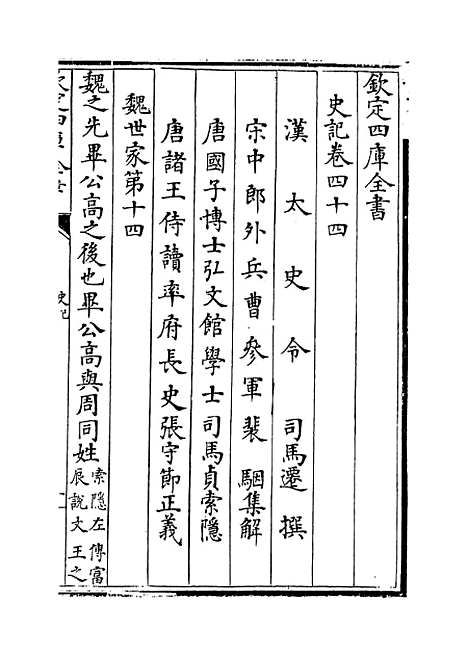 欽定四庫全書
史記卷四十四
漢太史令司馬遷撰
宋中郎外兵曹參軍裴駰集解
唐國子博士弘文館學士司馬貞索隱
唐諸王侍讀率府長史張守節正義
魏世家第十四
魏之先畢公高之後也畢公高與周同姓
索隱左傳富
辰說文王之
史記